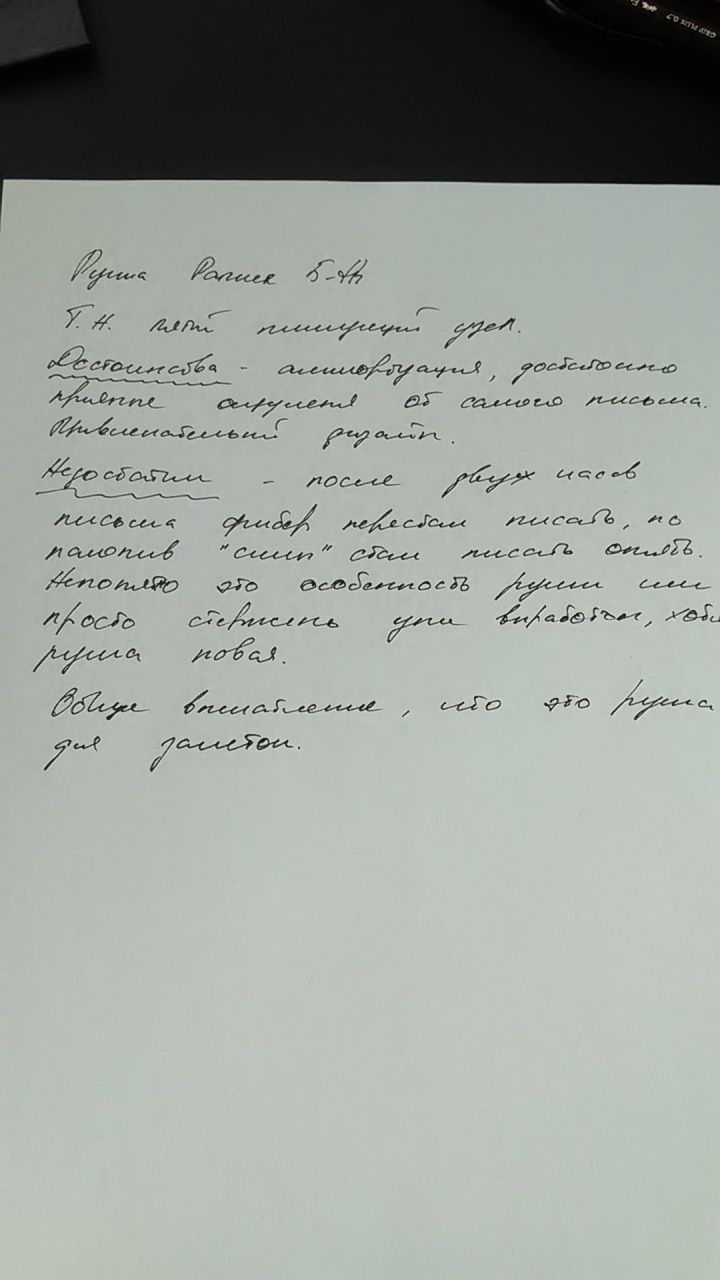 GRIP PLUS 0.7
Ручка Parker 5-th
Т.Н. пятый пишущий узел.
Достоинства - амортизация, достаточно
приятные ощущения от самого письма.
Привлекательный дизайн.
Недостатки - после двух часов
письма фибер перестал писать, но
накопив "сили" стал писать опять.
Непонятно это особенность ручки или
просто стержень уже выработан, хотя
ручка новая.
Общее впечатление, что это ручка
для заметок.